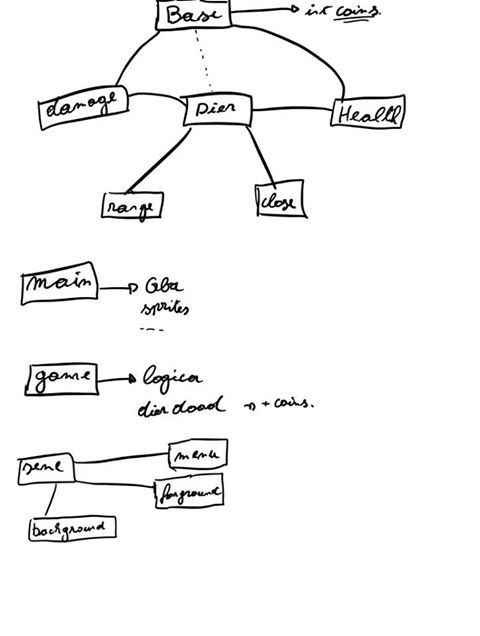 Base
int coins.
damage
Dier
Health
range
close
main
Gba
sprites
---
game
logica
dier dood → + coins.
sene
menu
forground
background